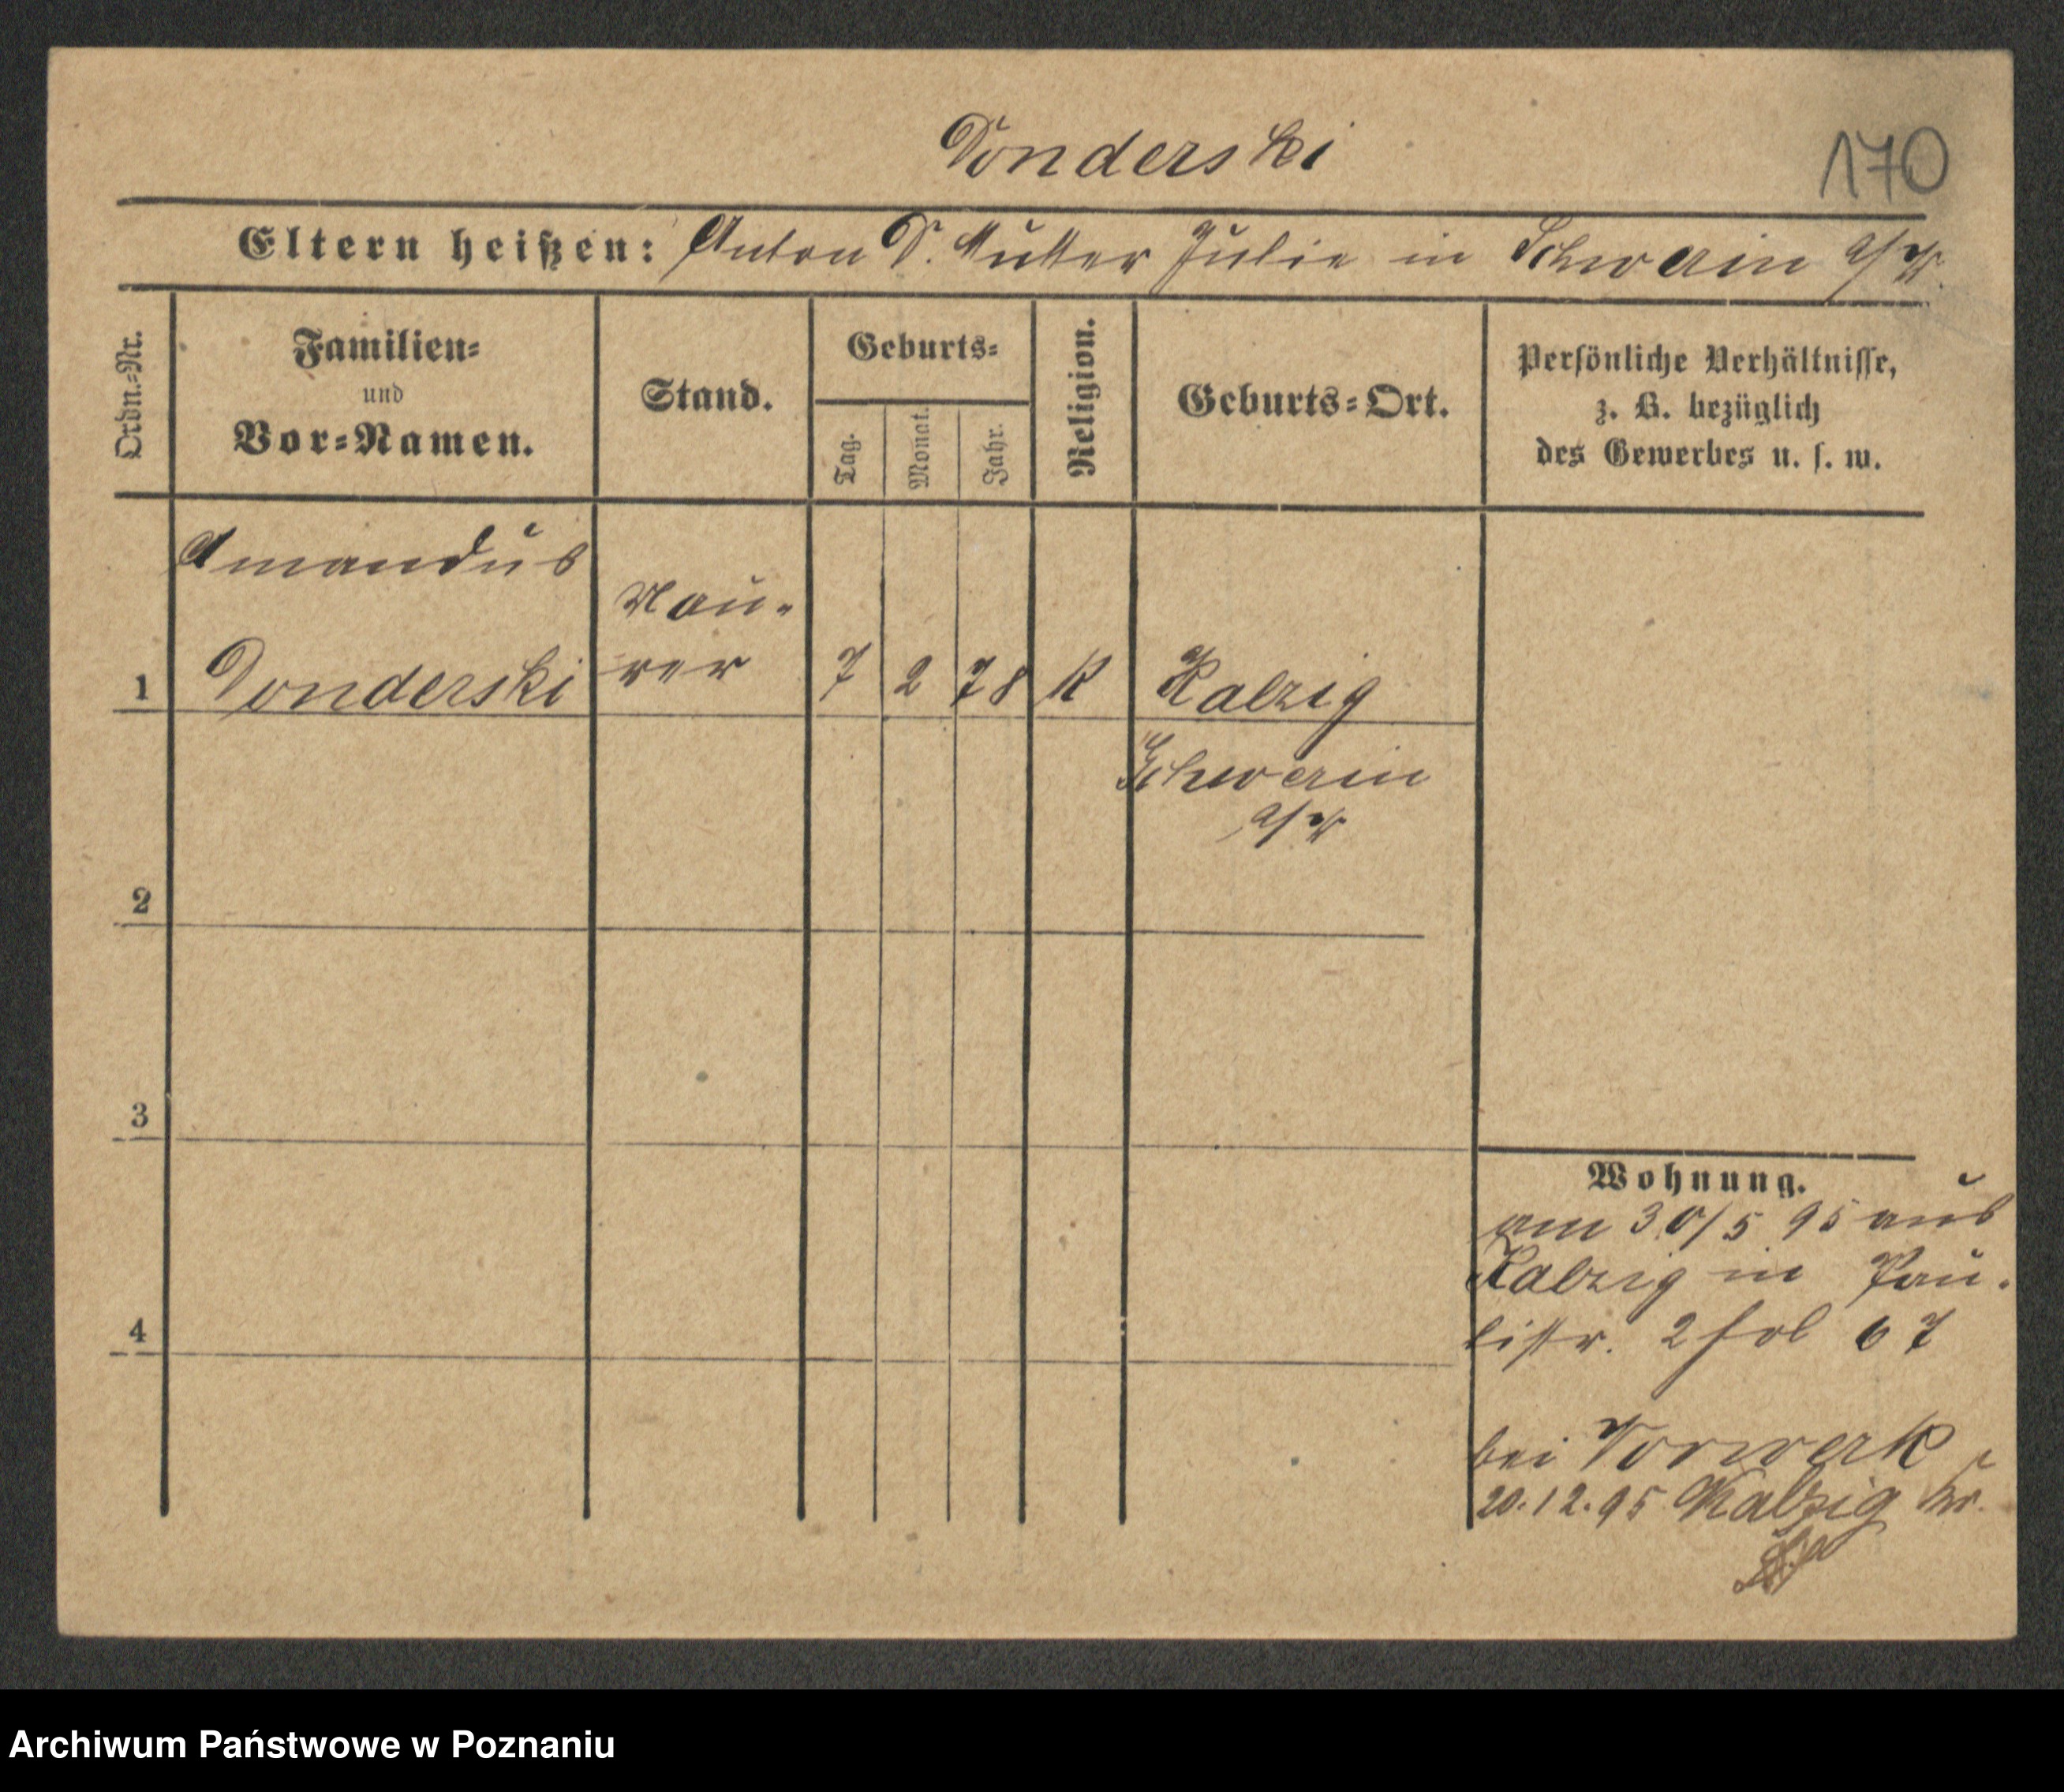 Donderski
170
Eltern heißen: Anton D. Mutter Julie in Schwerin a/W.
Ordn.-Nr.
Familien-
und
Vor-Namen.
Stand.
Geburts-
Tag.
Monat.
Jahr.
Religion.
Geburts-Ort.
Persönliche Verhältnisse,
z. B. bezüglich
des Gewerbes u. s. w.
Amandus
Mau-
rer
1 Donderski 7 2 78 K Kalzig
Schwerin
a/W
2
3
4
Wohnung.
am 30/5 95 aus
Kalzig in Pau-
listr. 2 fol 67
bei Vorwerk
20.12.95 Kalzig
Archiwum Państwowe w Poznaniu